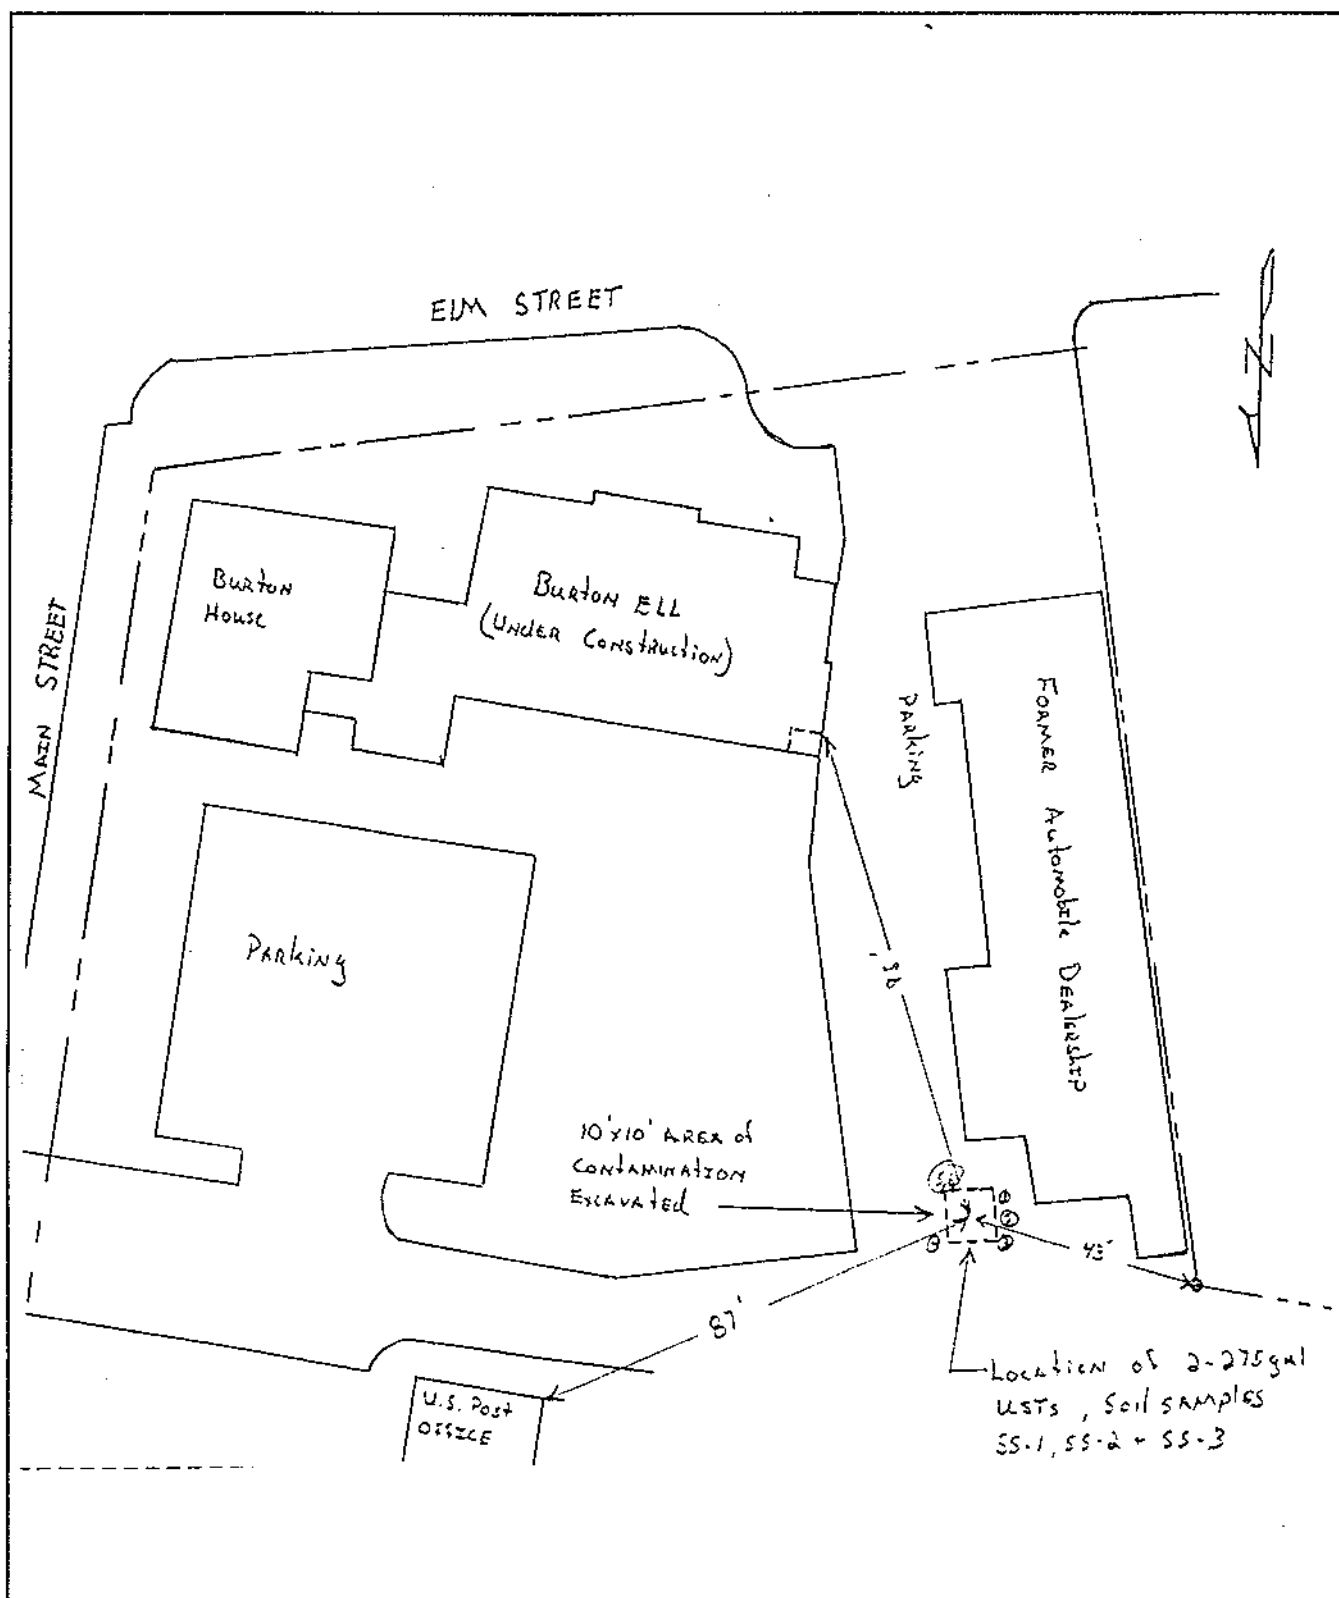 ELM STREET
N
MAIN STREET
BURTON
HOUSE
BURTON ELL
(UNDER CONSTRUCTION)
PARKING
FORMER AUTOMOBILE DEALERSHIP
PARKING
10'x10' AREA of
CONTAMINATION
EXCAVATED
43'
87'
U.S. Post
OFFICE
LOCATION OF 2-275gal
USTs, Soil SAMPLES
SS-1, SS-2 + SS-3